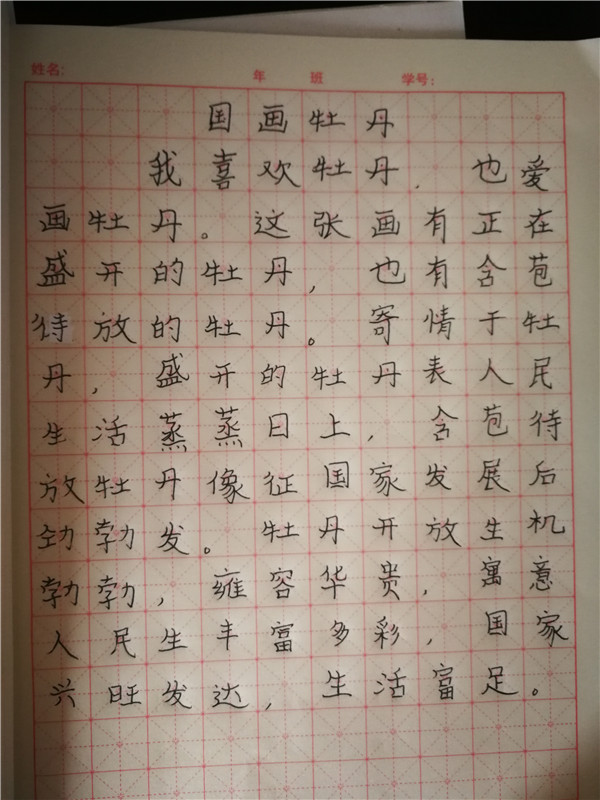 姓名: 年 班 学号:
国画牡丹
我喜欢牡丹,也爱
画牡丹。这张画有正在
盛开的牡丹,也有含苞
待放的牡丹。寄情于牡
丹,盛开的牡丹表人民
生活蒸蒸日上,含苞待
放牡丹像征国家发展后
劲勃发。牡丹开放生机
勃勃,雍容华贵,寓意
人民生丰富多彩,国家
兴旺发达,生活富足。